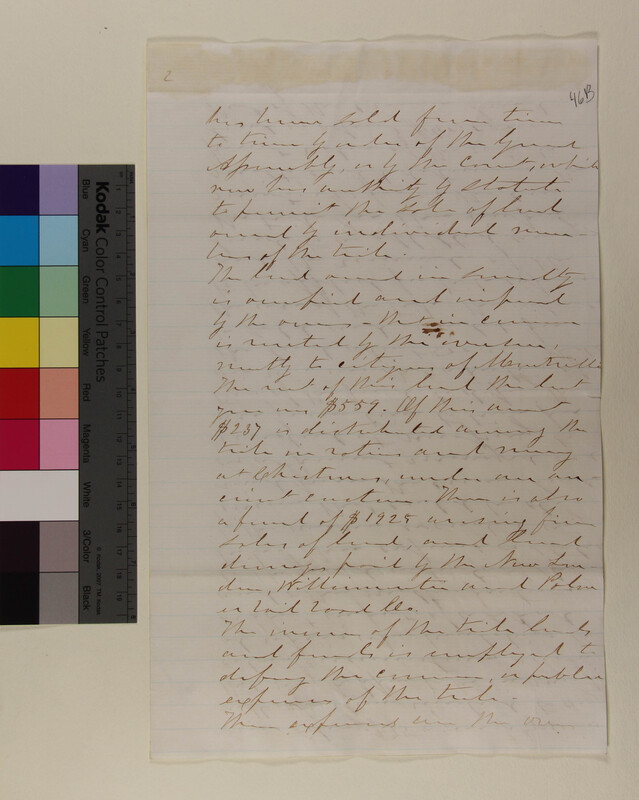 2
46B
has been sold from time
to time by order of the General
Assembly, or by the Court, which
now has authority by Statute
to permit the sale of land
owned by individual mem-
bers of the tribe.
The land owned in severalty
is occupied and improved
by the owners - that in common
is rented by the overseer,
mostly to citizens of Montville
The rent of this land the last
year was $559. Of this amount
$237 is distributed among the
tribe in rations and money
at Christmas, under an an-
cient custom. There is also
a fund of $1925 arising from
sales of land, and land
damages paid by the New Lon-
don, Willimantic and Palm-
er Rail Road Co.
The income of the tribe lands
and funds is employed to
defray the common, or public
expenses of the tribe.
These expenses are, the
Kodak Color Control Patches
Blue
Cyan
Green
Yellow
Red
Magenta
White
3/Color
Black